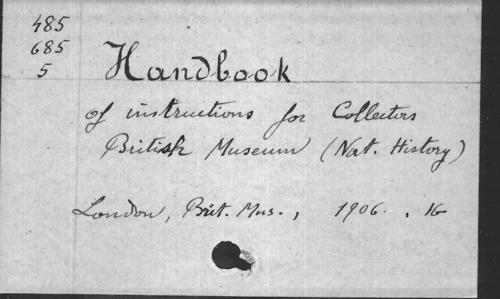 485
685
5
Handbook
of instructions for Collectors
British Museum (Nat. History)
London, Brit. Mus., 1906. . 16